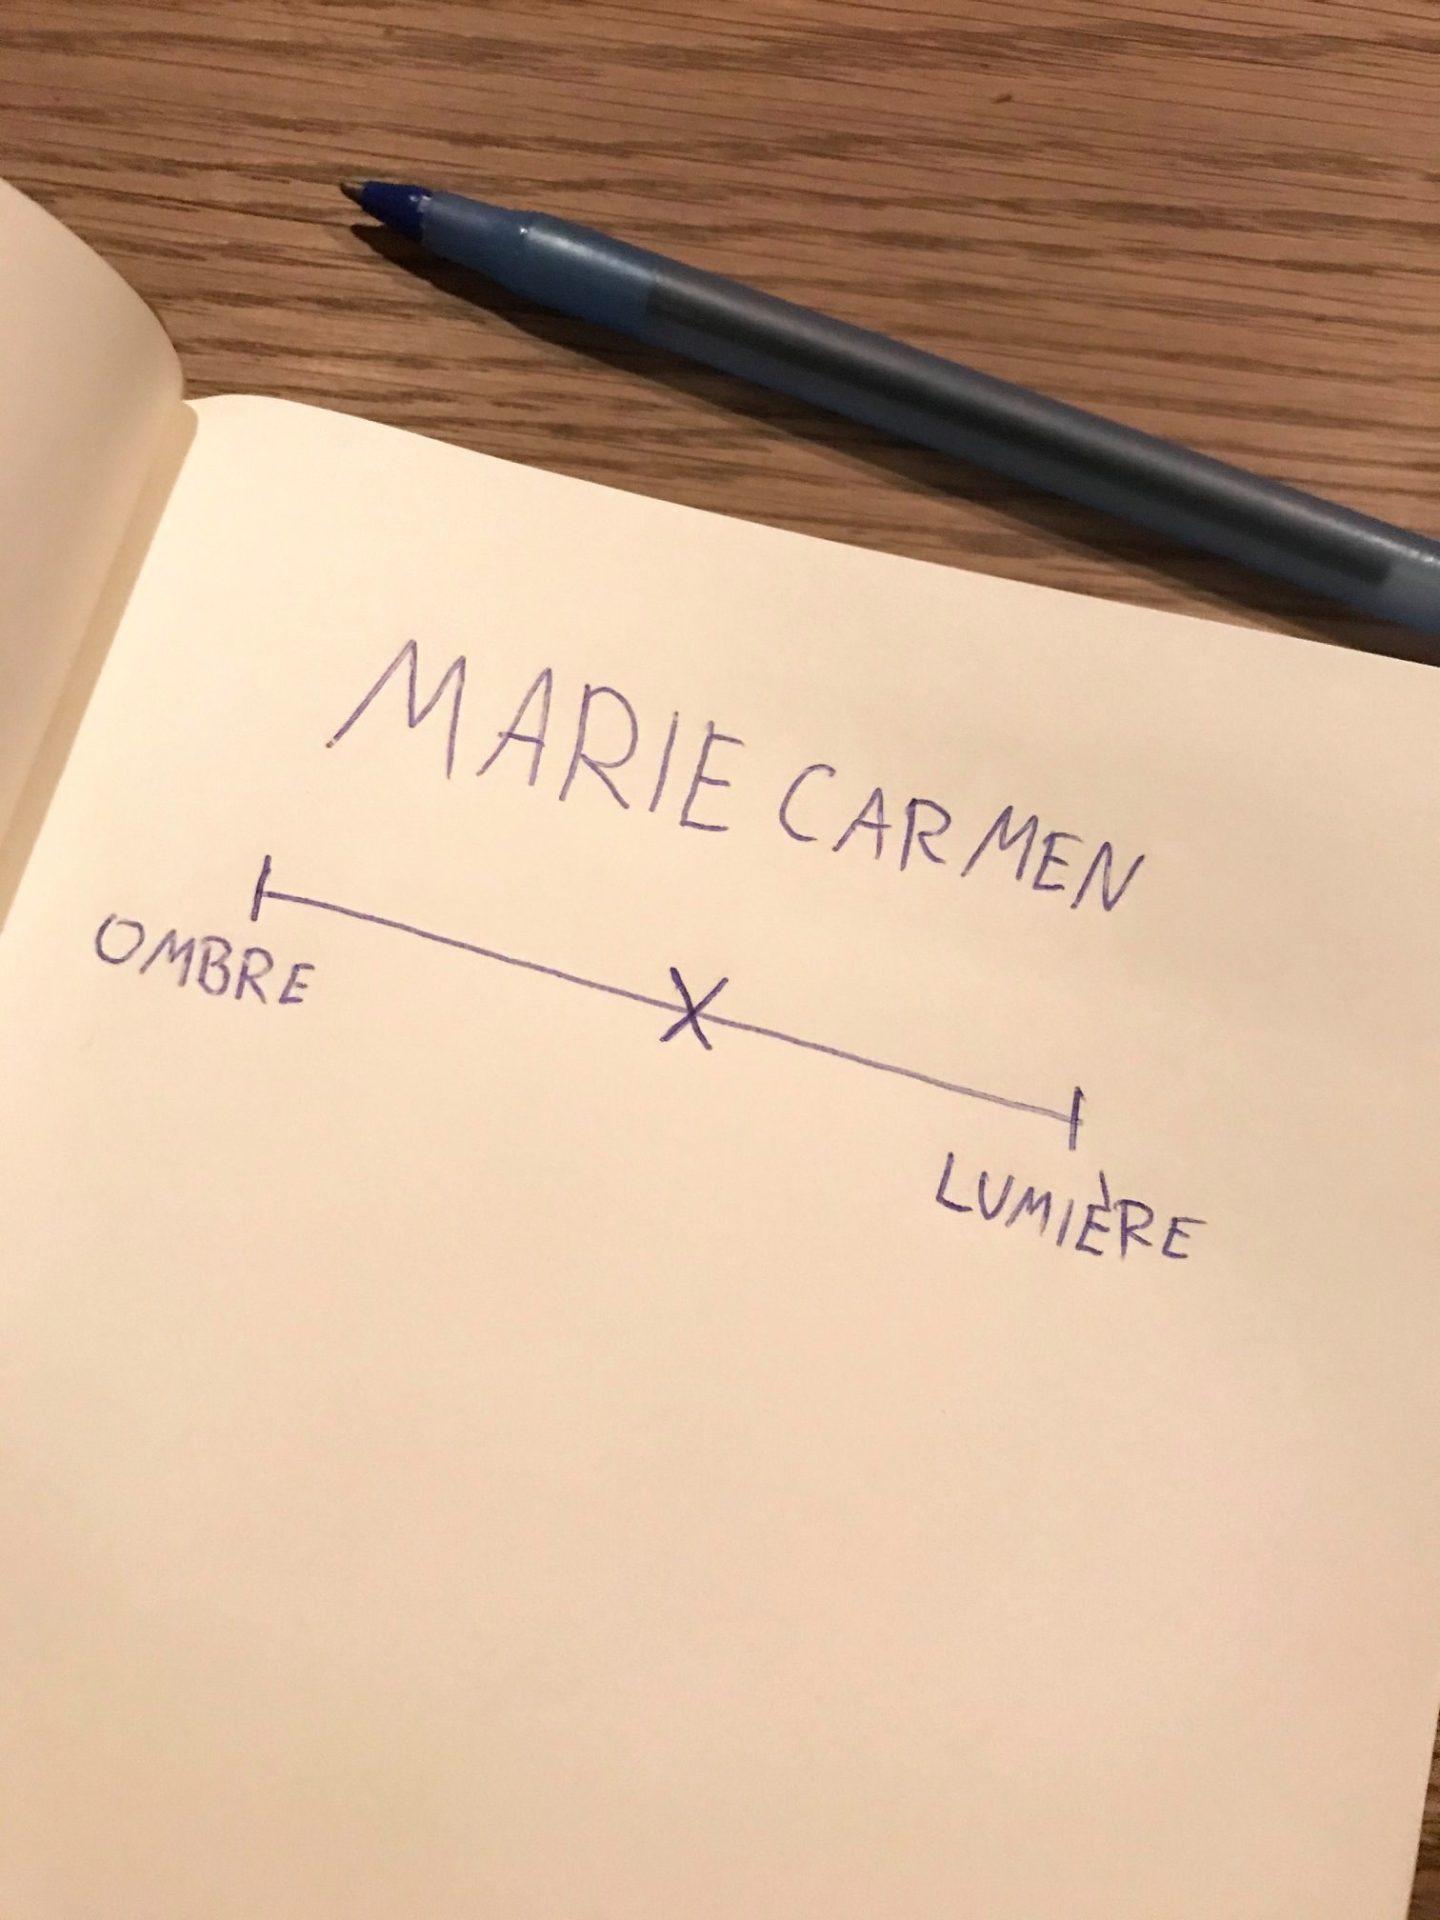 MARIE CARMEN
OMBRE
X
LUMIÈRE